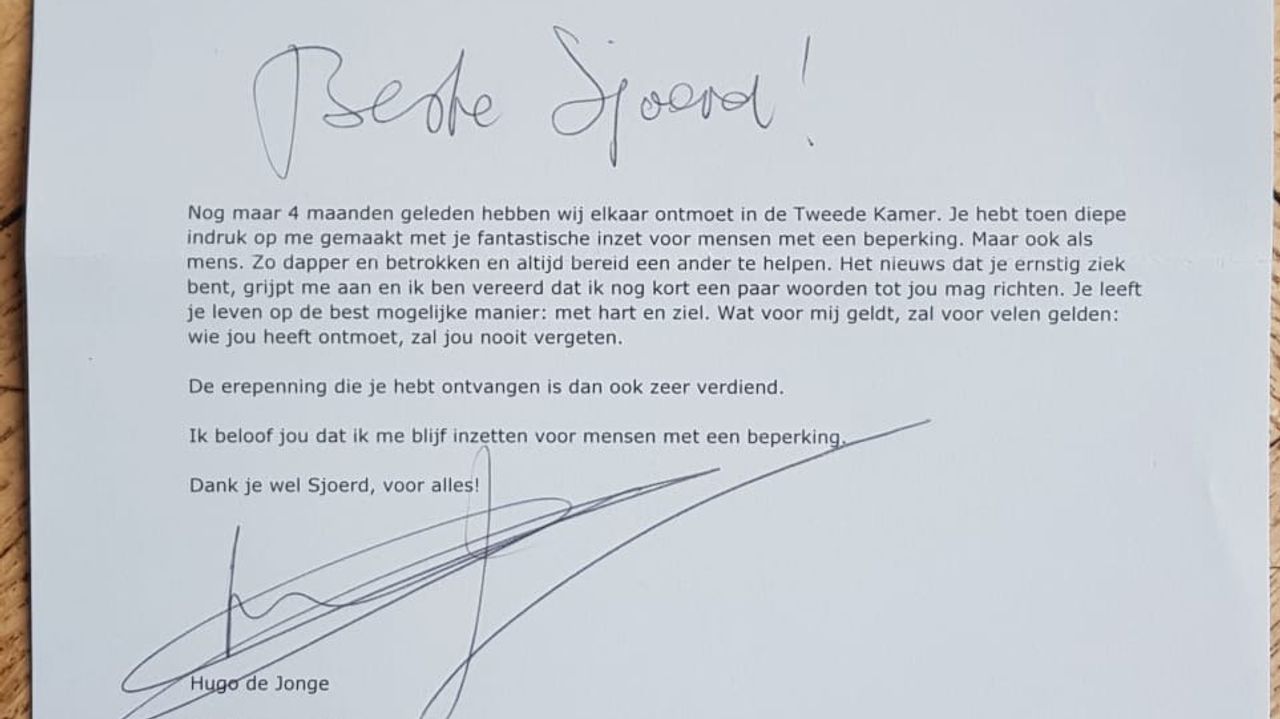 Beste Sjoerd!
Nog maar 4 maanden geleden hebben wij elkaar ontmoet in de Tweede Kamer. Je hebt toen diepe
indruk op me gemaakt met je fantastische inzet voor mensen met een beperking. Maar ook als
mens. Zo dapper en betrokken en altijd bereid een ander te helpen. Het nieuws dat je ernstig ziek
bent, grijpt me aan en ik ben vereerd dat ik nog kort een paar woorden tot jou mag richten. Je leeft
je leven op de best mogelijke manier: met hart en ziel. Wat voor mij geldt, zal voor velen gelden:
wie jou heeft ontmoet, zal jou nooit vergeten.
De erepenning die je hebt ontvangen is dan ook zeer verdiend.
Ik beloof jou dat ik me blijf inzetten voor mensen met een beperking.
Dank je wel Sjoerd, voor alles!
Hugo de Jonge